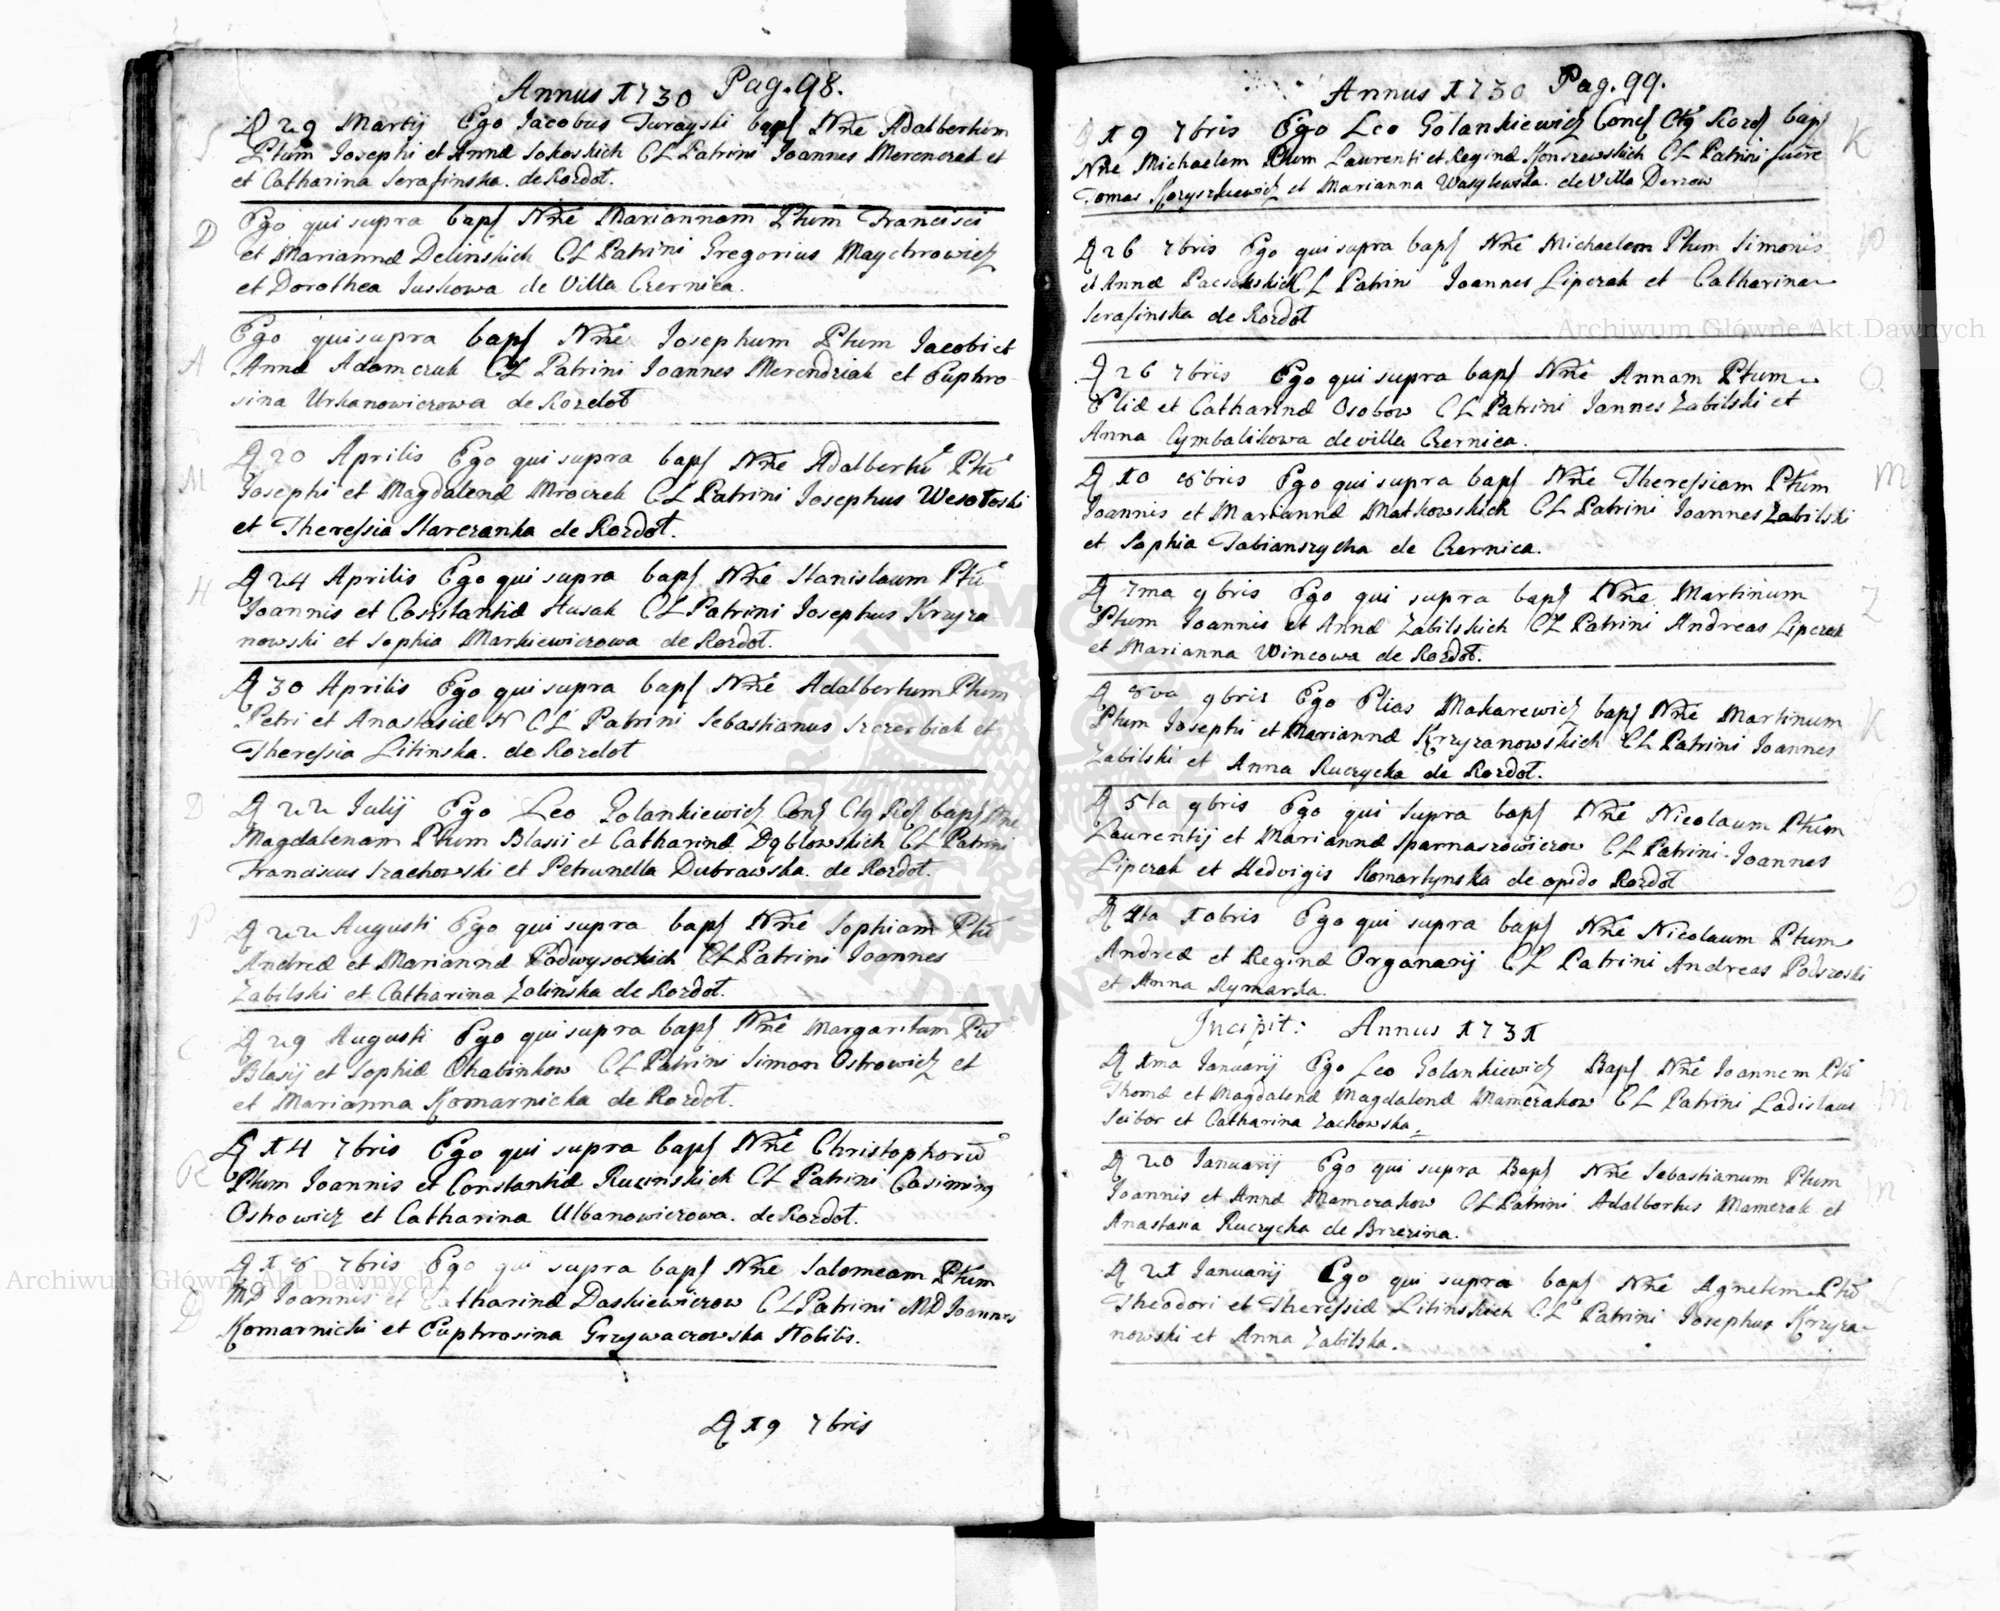 Annus 1730 Pag. 98.
D 29 Martij Ego Jacobus Turayski bapt Nñe Adalbertum
Ptum Josephi et Annæ Sokoskich CL Patrini Joannes Merenczak et
et Catharina Serafinska. de Rozdoł.
D
Ego qui supra bapt Nñe Mariannam Ptum Francisci
et Mariannæ Delinskich CL Patrini Gregorius Maychrowicz
et Dorothea Juskowa de Villa Czernica.
A
Ego qui supra bapt Nñe Josephum Ptum Jacobi et
Annæ Adamczuk CL Patrini Joannes Merendziak et Euphro-
sina Urbanowiczowa de Rozdoł
M
D 20 Aprilis Ego qui supra bapt Nñe Adalbertũ Ptũ
Josephi et Magdalenæ Mroczek CL Patrini Josephus Wesołoski
et Theressia Starczanka de Rozdoł.
H
D 24 Aprilis Ego qui supra bapt Nñe Stanislaum Ptũ
Joannis et Constantiæ Husak CL Patrini Josephus Krzyza
nowski et Sophia Markiewiczowa de Rozdoł.
D 30 Aprilis Ego qui supra bapt Nñe Adalbertum Ptum
Petri et Anastasiæ N CL Patrini Sebastianus Szczerbiak et
Theressia Litinska. de Rozdoł
D
D 22 Julij Ego Leo Golankiewicz Conf Ctg Roz bapt Nñe
Magdalenam Ptum Blasii et Catharinæ Dąblowskich CL Patrini
Franciscus Szachowski et Petrunella Dubrawska. de Rozdoł.
P
D 22 Augusti Ego qui supra bapt Nñe Sophiam Ptũ
Andreæ et Mariannæ Podwysockich CL Patrini Joannes
Zabilski et Catharina Zolinska de Rozdoł.
C
D 29 Augusti Ego qui supra bapt Nñe Margaritam Ptũ
Blasij et Sophiæ Chabinkow CL Patrini Simon Ostrowicz et
et Marianna Komarnicka de Rozdoł.
R
D 14 7bris Ego qui supra bapt Nñe Christophorũ
Ptum Joannis et Constantiæ Rucinskich CL Patrini Casimirg
Ostrowicz et Catharina Ulbanowiczowa. de Rozdoł.
D
D 18 7bris Ego qui supra bapt Nñe Salomeam Ptum
MD Joannis et Catharinæ Daskiewiczow CL Patrini MD Joannes
Komarnicki et Euphrosina Grzywaczowska Nobilis.
D 19 7bris
Annus 1730 Pag. 99.
D 19 7bris Ego Leo Golankiewicz Conf Ctg Rozd bapt
K
Nñe Michaelem Ptum Laurenti et Reginæ Konszewskich CL Patrini fuere
Tomas Koryszkiewicz et Marianna Wasylewska. de Villa Derzow
D 26 7bris Ego qui supra bapt Nñe Michaelem Ptum Simonis
P
et Annæ Pacsoskich CL Patrini Joannes Liperak et Catharina
Serafinska de Rozdoł
D 26 7bris Ego qui supra bapt Nñe Annam Ptum
O
Eliæ et Catharinæ Osobow CL Patrini Jannes Zabilski et
Anna Cymbalikowa de villa Czernica.
D 10 8bris Ego qui supra bapt Nñe Theressiam Ptum
M
Joannis et Mariannæ Matkowskich CL Patrini Joannes Zabilski
et Sophia Fabianszycha de Czernica.
D 7ma 9bris Ego qui supra bapt Nñe Martinum
Z
Ptum Joannis et Annæ Zabilskich CL Patrini Andreas Liperak
et Marianna Wincowa de Rozdoł.
D 8va 9bris Ego Elias Makarewicz bapt Nñe Martinum
K
Ptum Josephi et Mariannæ Krzyzanowskich CL Patrini Joannes
Zabilski et Anna Ruczycka de Rozdoł.
D 5ta 9bris Ego qui supra bapt Nñe Nicolaum Ptum
Laurentij et Mariannæ Sparnaszowiczow CL Patrini Joannes
Liperak et Hedvigis Komartynska de opido Rozdoł
D 4ta 10bris Ego qui supra bapt Nñe Nicolaum Ptum
O
Andreæ et Reginæ Organarij CL Patrini Andreas Podszoski
et Anna Rymarka.
Incipit: Annus 1731
D 1ma Januarij Ego Leo Golankiewicz Bapt Nñe Joannem Ptũ
Thomæ et Magdalenæ Magdalenæ Mamczakow CL Patrini Ladislaus
M
Seibor et Catharina Zachowska.
D 20 Januarij Ego qui supra Bapt Nñe Sebastianum Ptum
M
Joannis et Annæ Mamczakow CL Patrini Adalbertus Mamczak et
Anastasia Ruczycka de Brzezina.
D 21 Januarij Ego qui supra bapt Nñe Agnetem Ptũ
L
Theodori et Theressiæ Litinskich CL Patrini Josephus Krzyza-
nowski et Anna Zabilska.
Archiwum Główne Akt Dawnych
Archiwum Główne Akt Dawnych